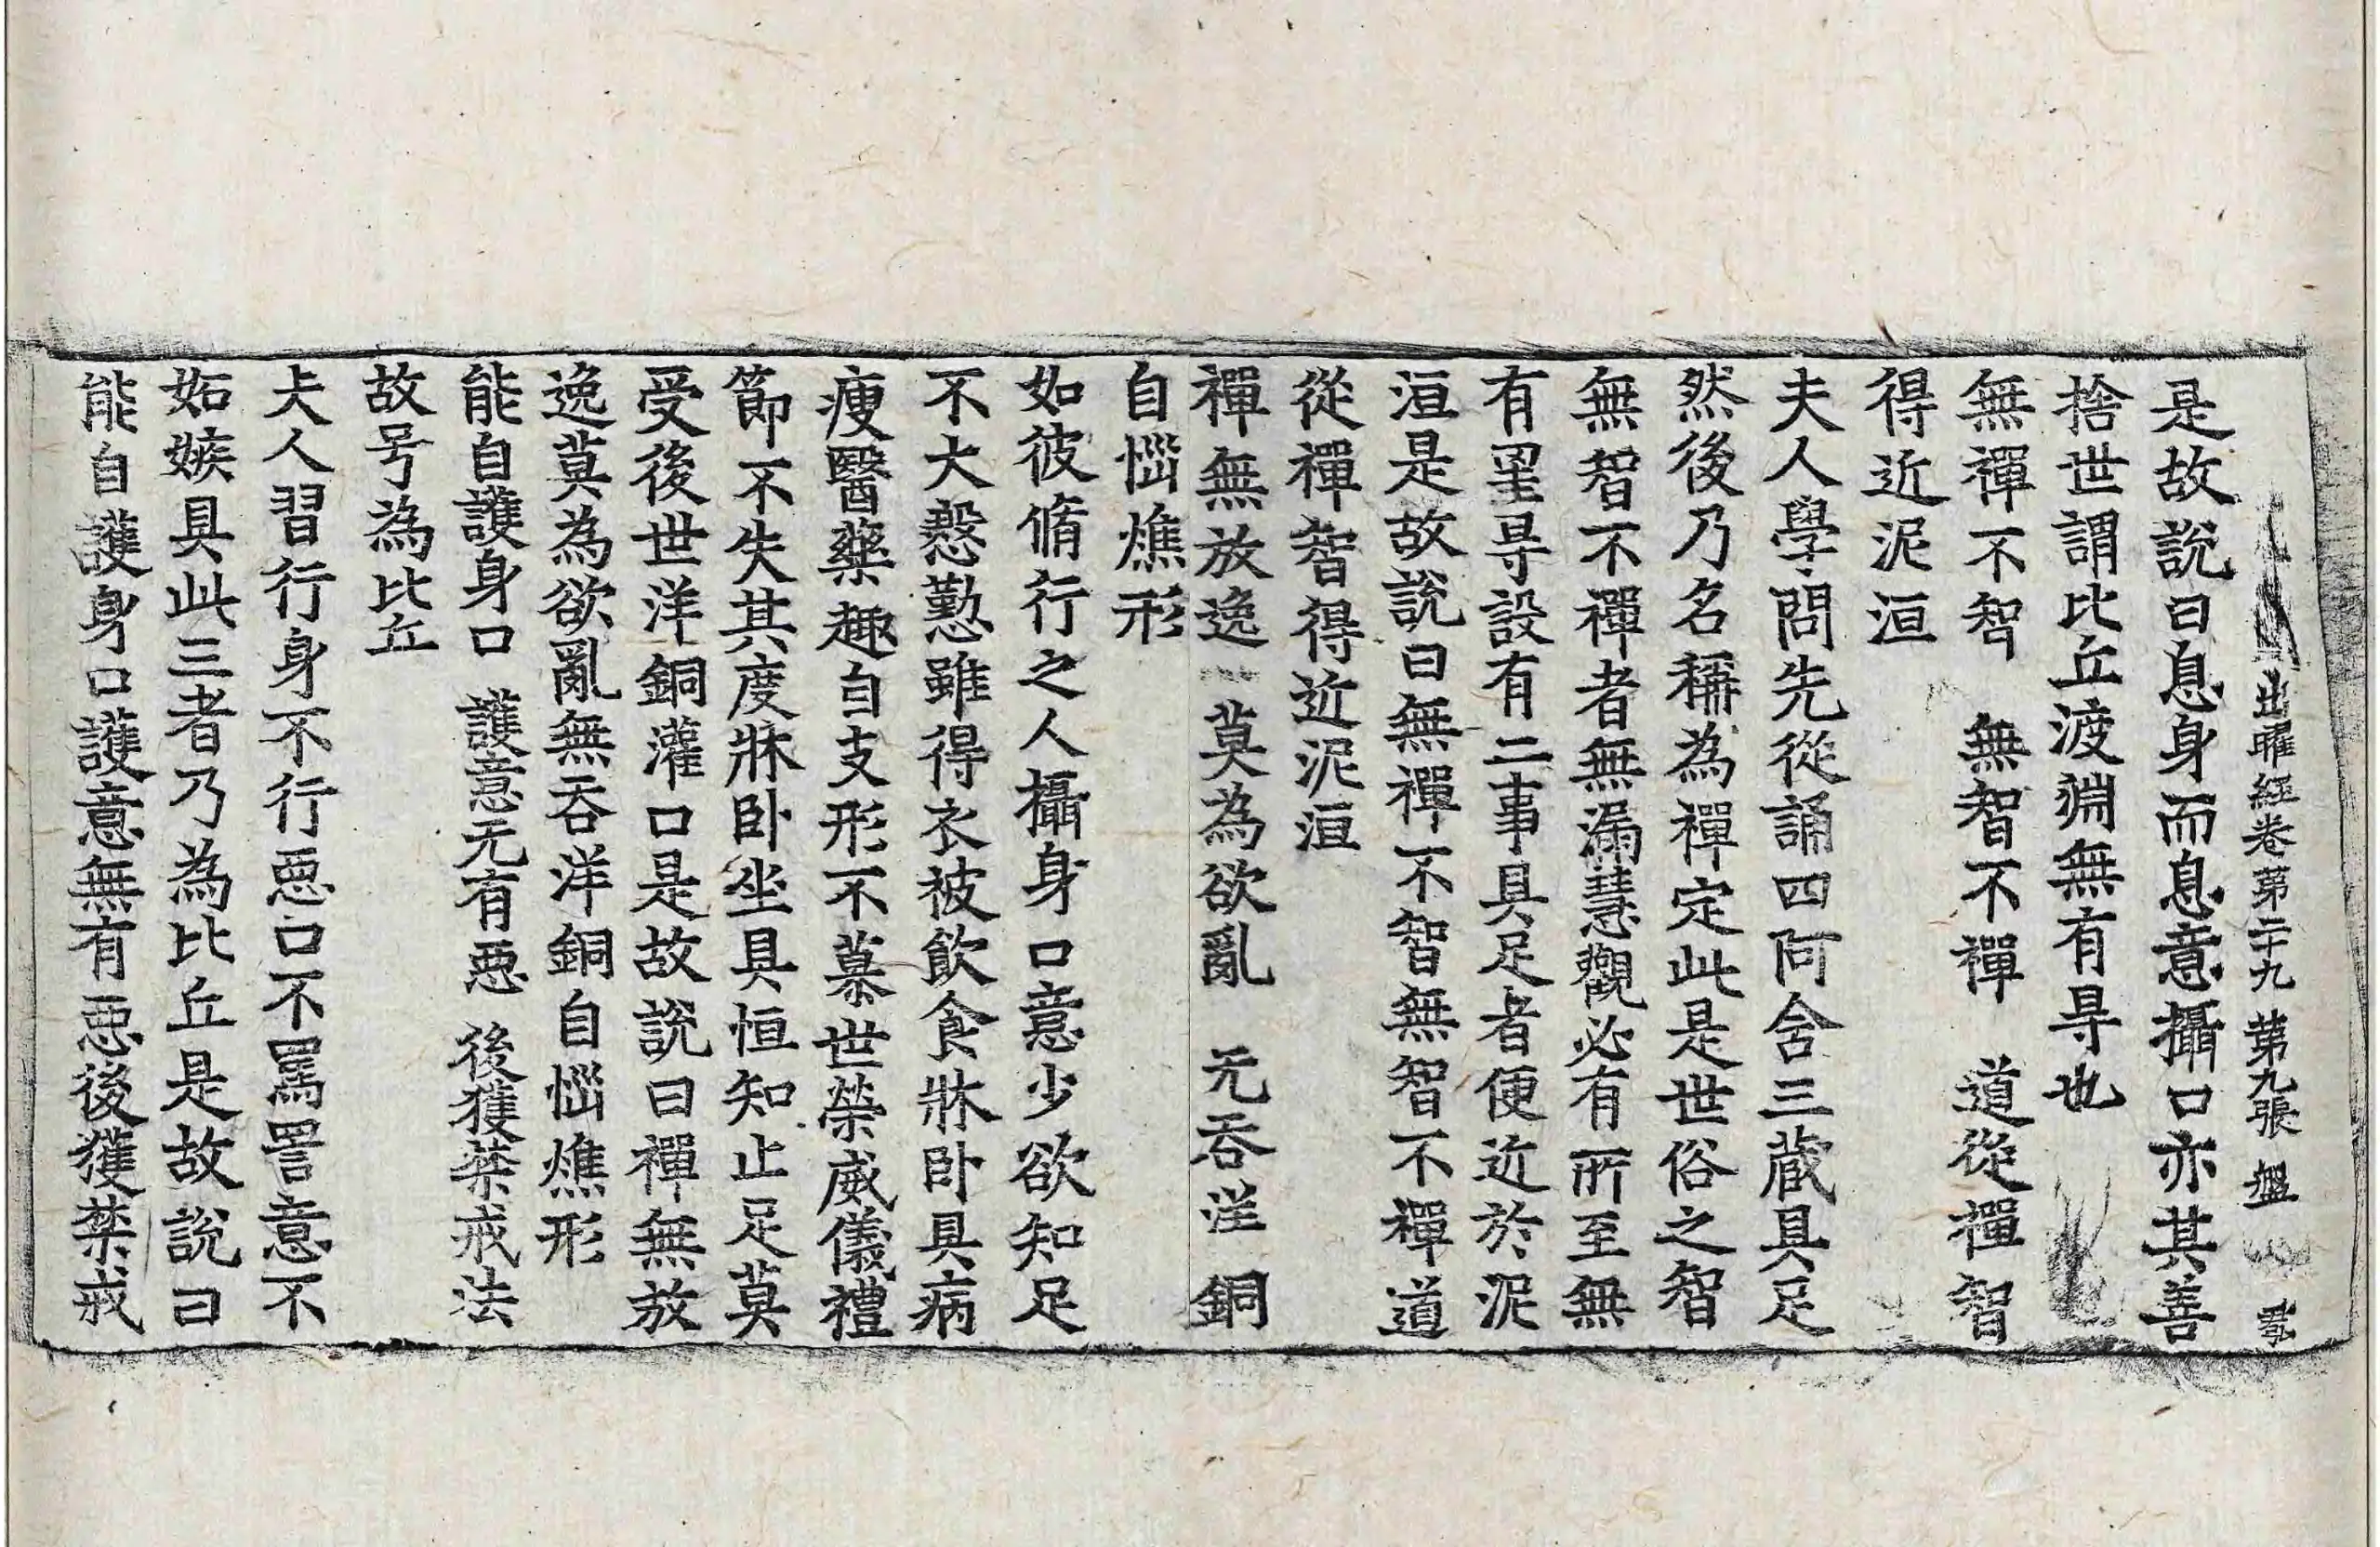 出曜經卷第二十九 第九張 盤
是故說曰息身而息意攝口亦其善
捨世謂比丘渡淵無有㝵也
無禪不智 無智不禪 道從禪智
得近泥洹
夫人學問先從誦四阿含三藏具足
然後乃名稱為禪定此是世俗之智
無智不禪者無漏慧觀必有所至無
有罣㝵設有二事具足者便近於泥
洹是故說曰無禪不智無智不禪道
從禪智得近泥洹
禪無放逸 莫為欲亂 无吞洋銅
自惱燋形
如彼脩行之人攝身口意少欲知足
不大慇懃雖得衣被飲食牀卧具病
瘦醫藥趣自支形不慕世榮威儀禮
節不失其度牀卧坐具恒知止足莫
受後世洋銅灌口是故說曰禪無放
逸莫為欲亂無吞洋銅自惱燋形
能自護身口 護意无有惡 後獲禁戒法
故号為比丘
夫人習行身不行惡口不罵詈意不
妬嫉具此三者乃為比丘是故說曰
能自護身口護意無有惡後獲禁戒